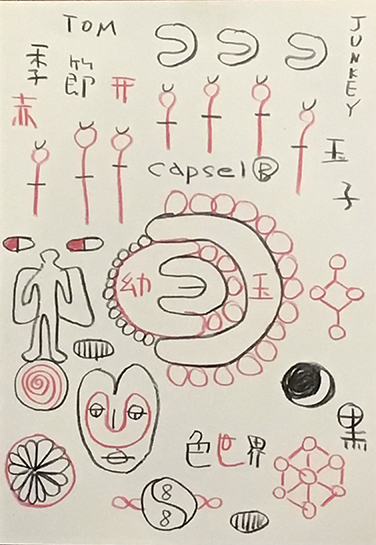 TOM
JUNKEY
季節
赤
开
玉子
capsel Ⓑ
幼 玉
色世界
黒
8
8